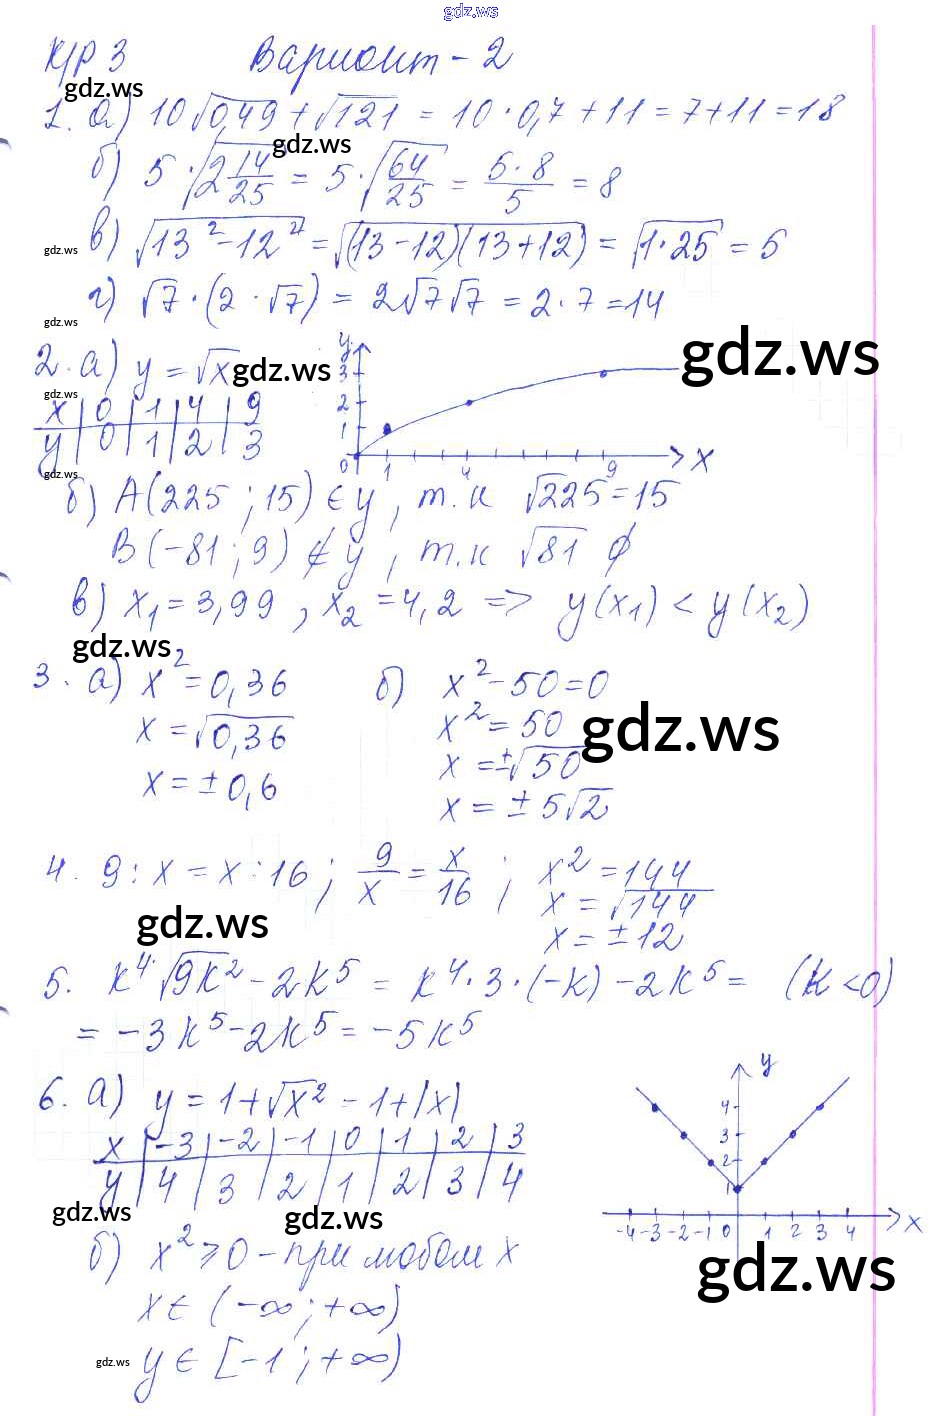 gdz.ws
К/Р 3 Вариант - 2
gdz.ws
1. а) 10√0,49 + √121 = 10 · 0,7 + 11 = 7 + 11 = 18
gdz.ws
б) 5 · √(2 14/25) = 5 · √(64/25) = (5 · 8)/5 = 8
в) √(13² - 12²) = √((13 - 12)(13 + 12)) = √(1 · 25) = 5
gdz.ws
г) √7 · (2 · √7) = 2√7√7 = 2 · 7 = 14
gdz.ws
2. а) y = √x
gdz.ws
gdz.ws
gdz.ws
x | 0 | 1 | 4 | 9
y | 0 | 1 | 2 | 3
y 3 2 1 0 1 4 9 x
gdz.ws
б) A(225 ; 15) ∈ y, т.к √225 = 15
B(-81 ; 9) ∉ y, т.к √81 ∅
в) x₁ = 3,99, x₂ = 4,2 => y(x₁) < y(x₂)
gdz.ws
3. а) x² = 0,36
x = √0,36
x = ± 0,6
б) x² - 50 = 0
x² = 50
gdz.ws
x = ±√50
x = ± 5√2
4. 9 : x = x : 16 ; 9/x = x/16 ; x² = 144
x = √144
x = ± 12
gdz.ws
5. k⁴ · √(9k²) - 2k⁵ = k⁴ · 3 · (-k) - 2k⁵ = (k < 0)
= -3k⁵ - 2k⁵ = -5k⁵
6. а) y = 1 + √x² - 1 + |x|
x | -3 | -2 | -1 | 0 | 1 | 2 | 3
y | 4 | 3 | 2 | 1 | 2 | 3 | 4
y 4 3 2 1
-4 -3 -2 -1 0 1 2 3 4 x
gdz.ws
gdz.ws
gdz.ws
б) x² ⩾ 0 - при любом x
x ∈ (-∞ ; +∞)
gdz.ws
y ∈ [-1 ; +∞)